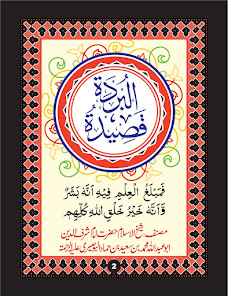 البردة
قصيدة
فَمَبْلَغُ الْعِلْمِ فِيهِ أَنَّهُ بَشَرٌ
وَأَنَّهُ خَيْرُ خَلْقِ اللهِ كُلِّهِمِ
مصنف شیخ الاسلام حضرت امام شرف الدین
ابو عبد اللہ محمد بن سعید بن حماد البوصیری علیہ الرحمۃ
2